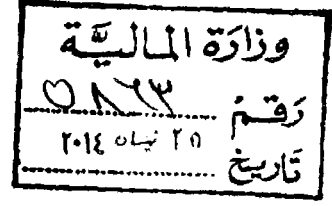 وزارَة الماليَّة
رَقمْ ٥٨٦٣
تَاريخ نيسان ٢٠١٤